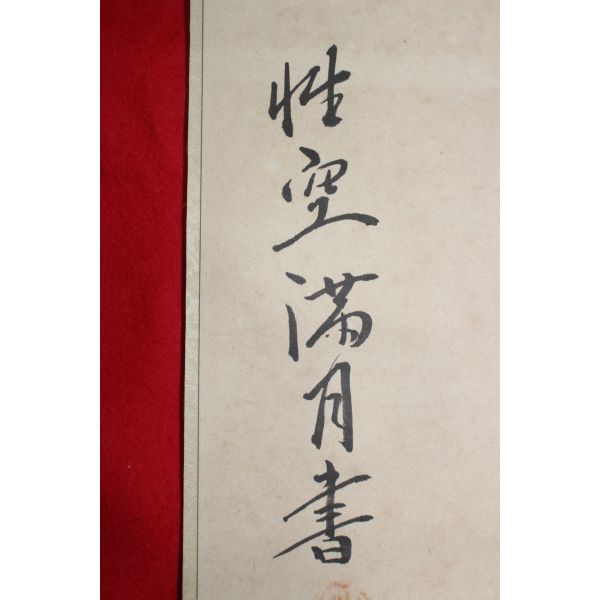 性空滿月書